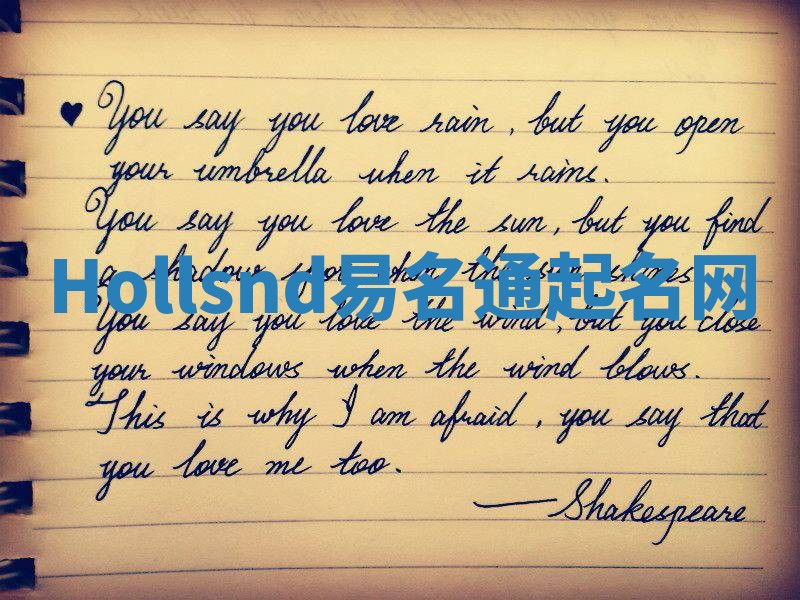 ♥ You say you love rain, but you open
your umbrella when it rains.
You say you love the sun, but you find
a shadow spot when the sun shines
Hollsnd易名通起名网
You say you love the wind, but you close
your windows when the wind blows.
This is why I am afraid, you say that
you love me too.
—Shakespeare